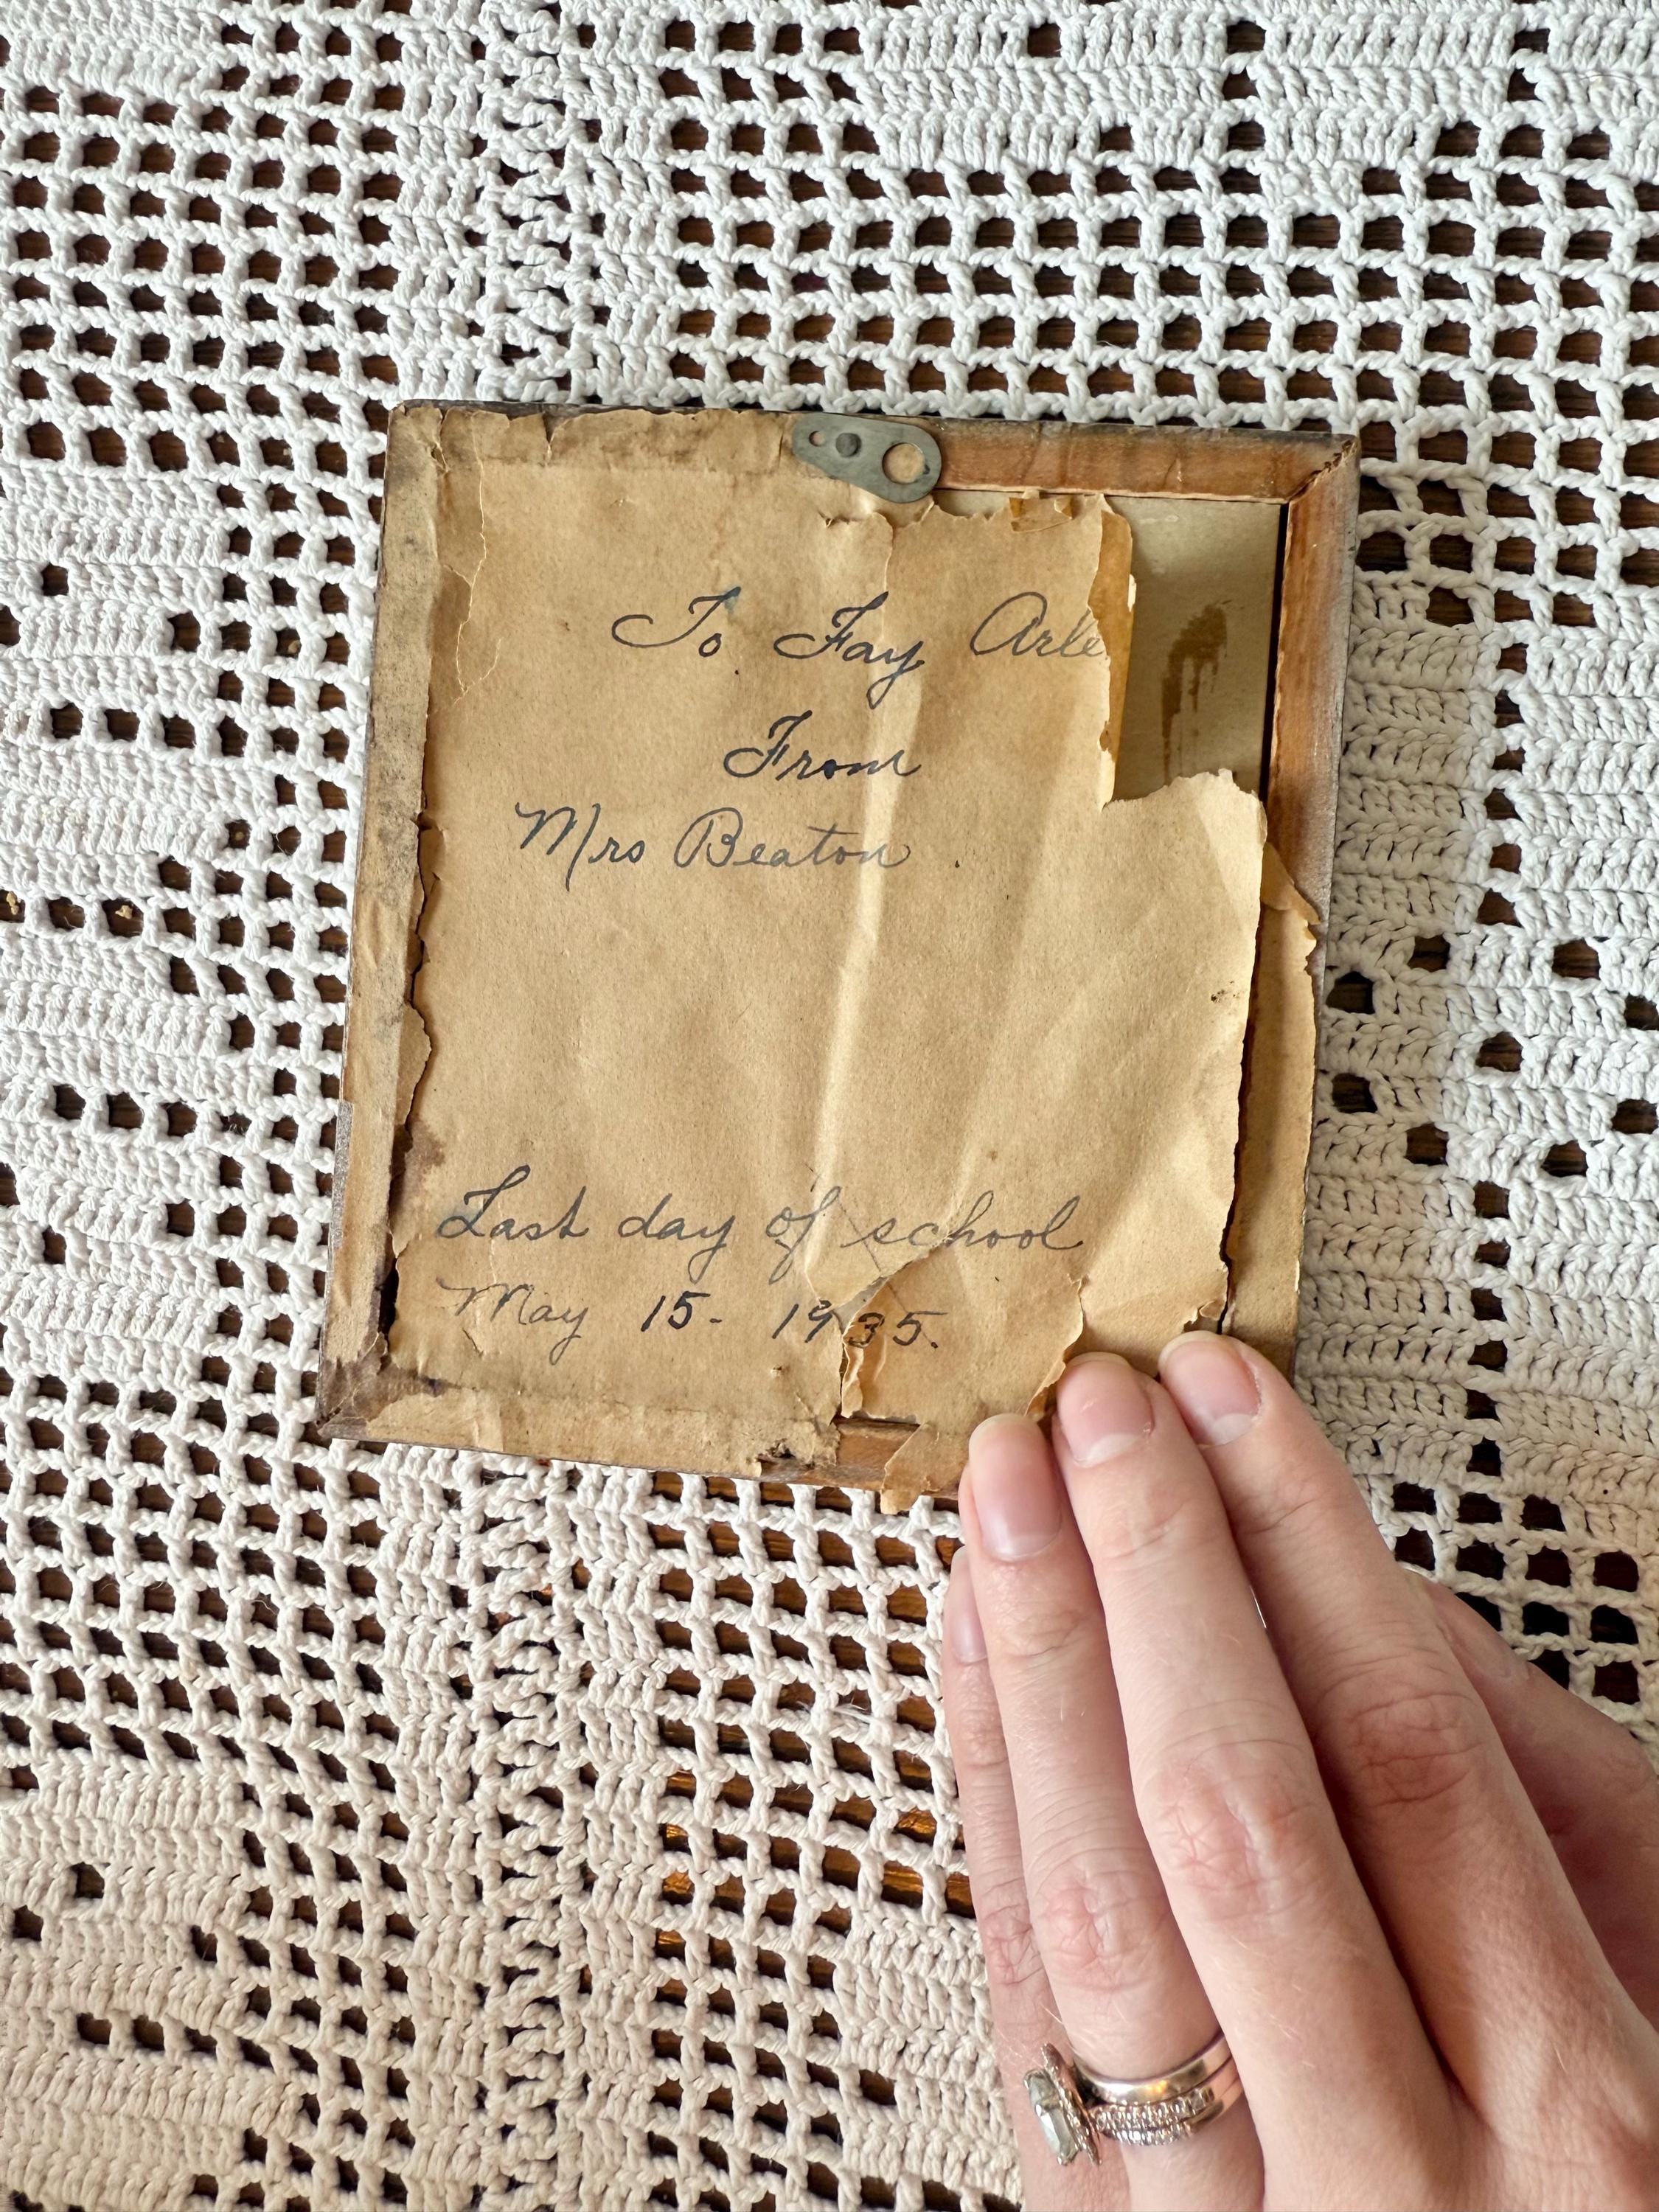 To Fay Arle
From
Mrs Beaton
Last day of school
May 15- 1935.